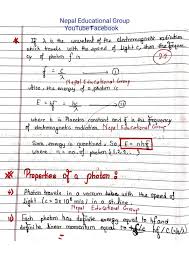 Nepal Educational Group
YouTube Facebook
If λ is the wavelength of the electromagnetic radiation
which travels with the speed of light c, then the frequency
of photon is
f = c/λ → ①
Nepal Educational Group
Also, the energy of a photon is
E = hf = hc/λ → ⑪
where h is Planck's constant and f is the frequency
of electromagnetic radiation. Nepal Educational Group
energy is quantised. So E = nhf
where n is no. of photon (1,2,
Properties of a photon :
i) Photon travels in a vacuum with the speed of
light (c = 3×10⁸ m/s) in a straight line.
Nepal Educational Group
ii) Each photon has definite energy equal to hf and
definite linear momentum equal to